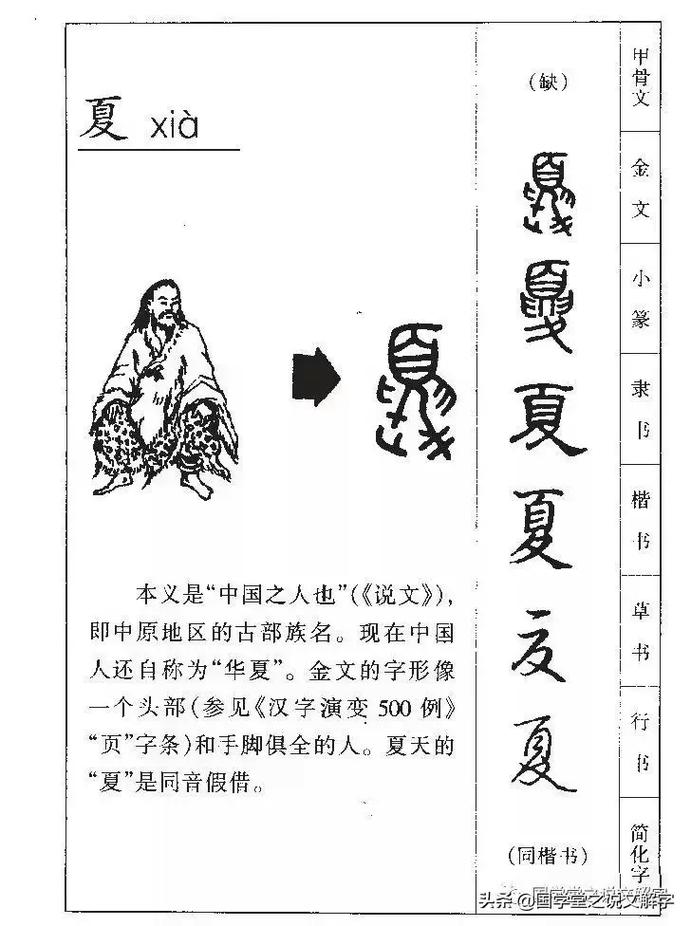 夏 xià
本义是“中国之人也”(《说文》),
即中原地区的古部族名。现在中国
人还自称为“华夏”。金文的字形像
一个头部(参见《汉字演变 500 例》
“页”字条)和手脚俱全的人。夏天的
“夏”是同音假借。
(缺)
夏
夏
夏
夏
(同楷书)
甲骨文
金文
小篆
隶书
楷书
草书
行书
简化字
头条 @国学堂之说文解字